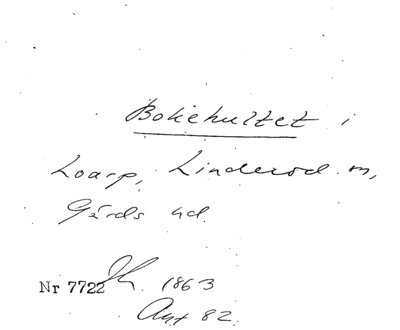 Bokehultet i
Loarp, Linderöd sn,
Gärds hd.
Nr 7722 1863
82.